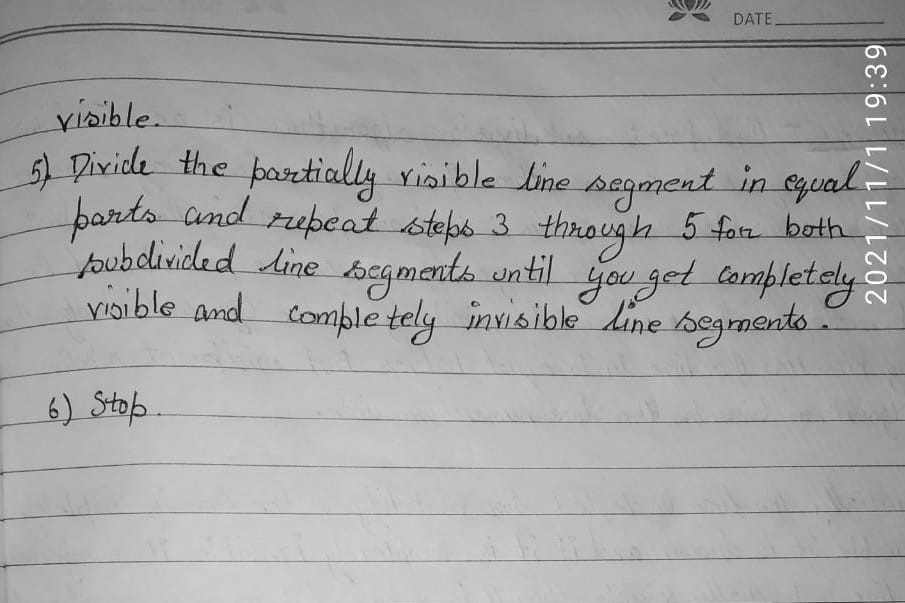 DATE
visible.
5) Divide the partially visible line segment in equal
parts and repeat steps 3 through 5 for both
subdivided line segments until you get completely
visible and completely invisible line segments.
6) Stop.
2021/11/1 19:39